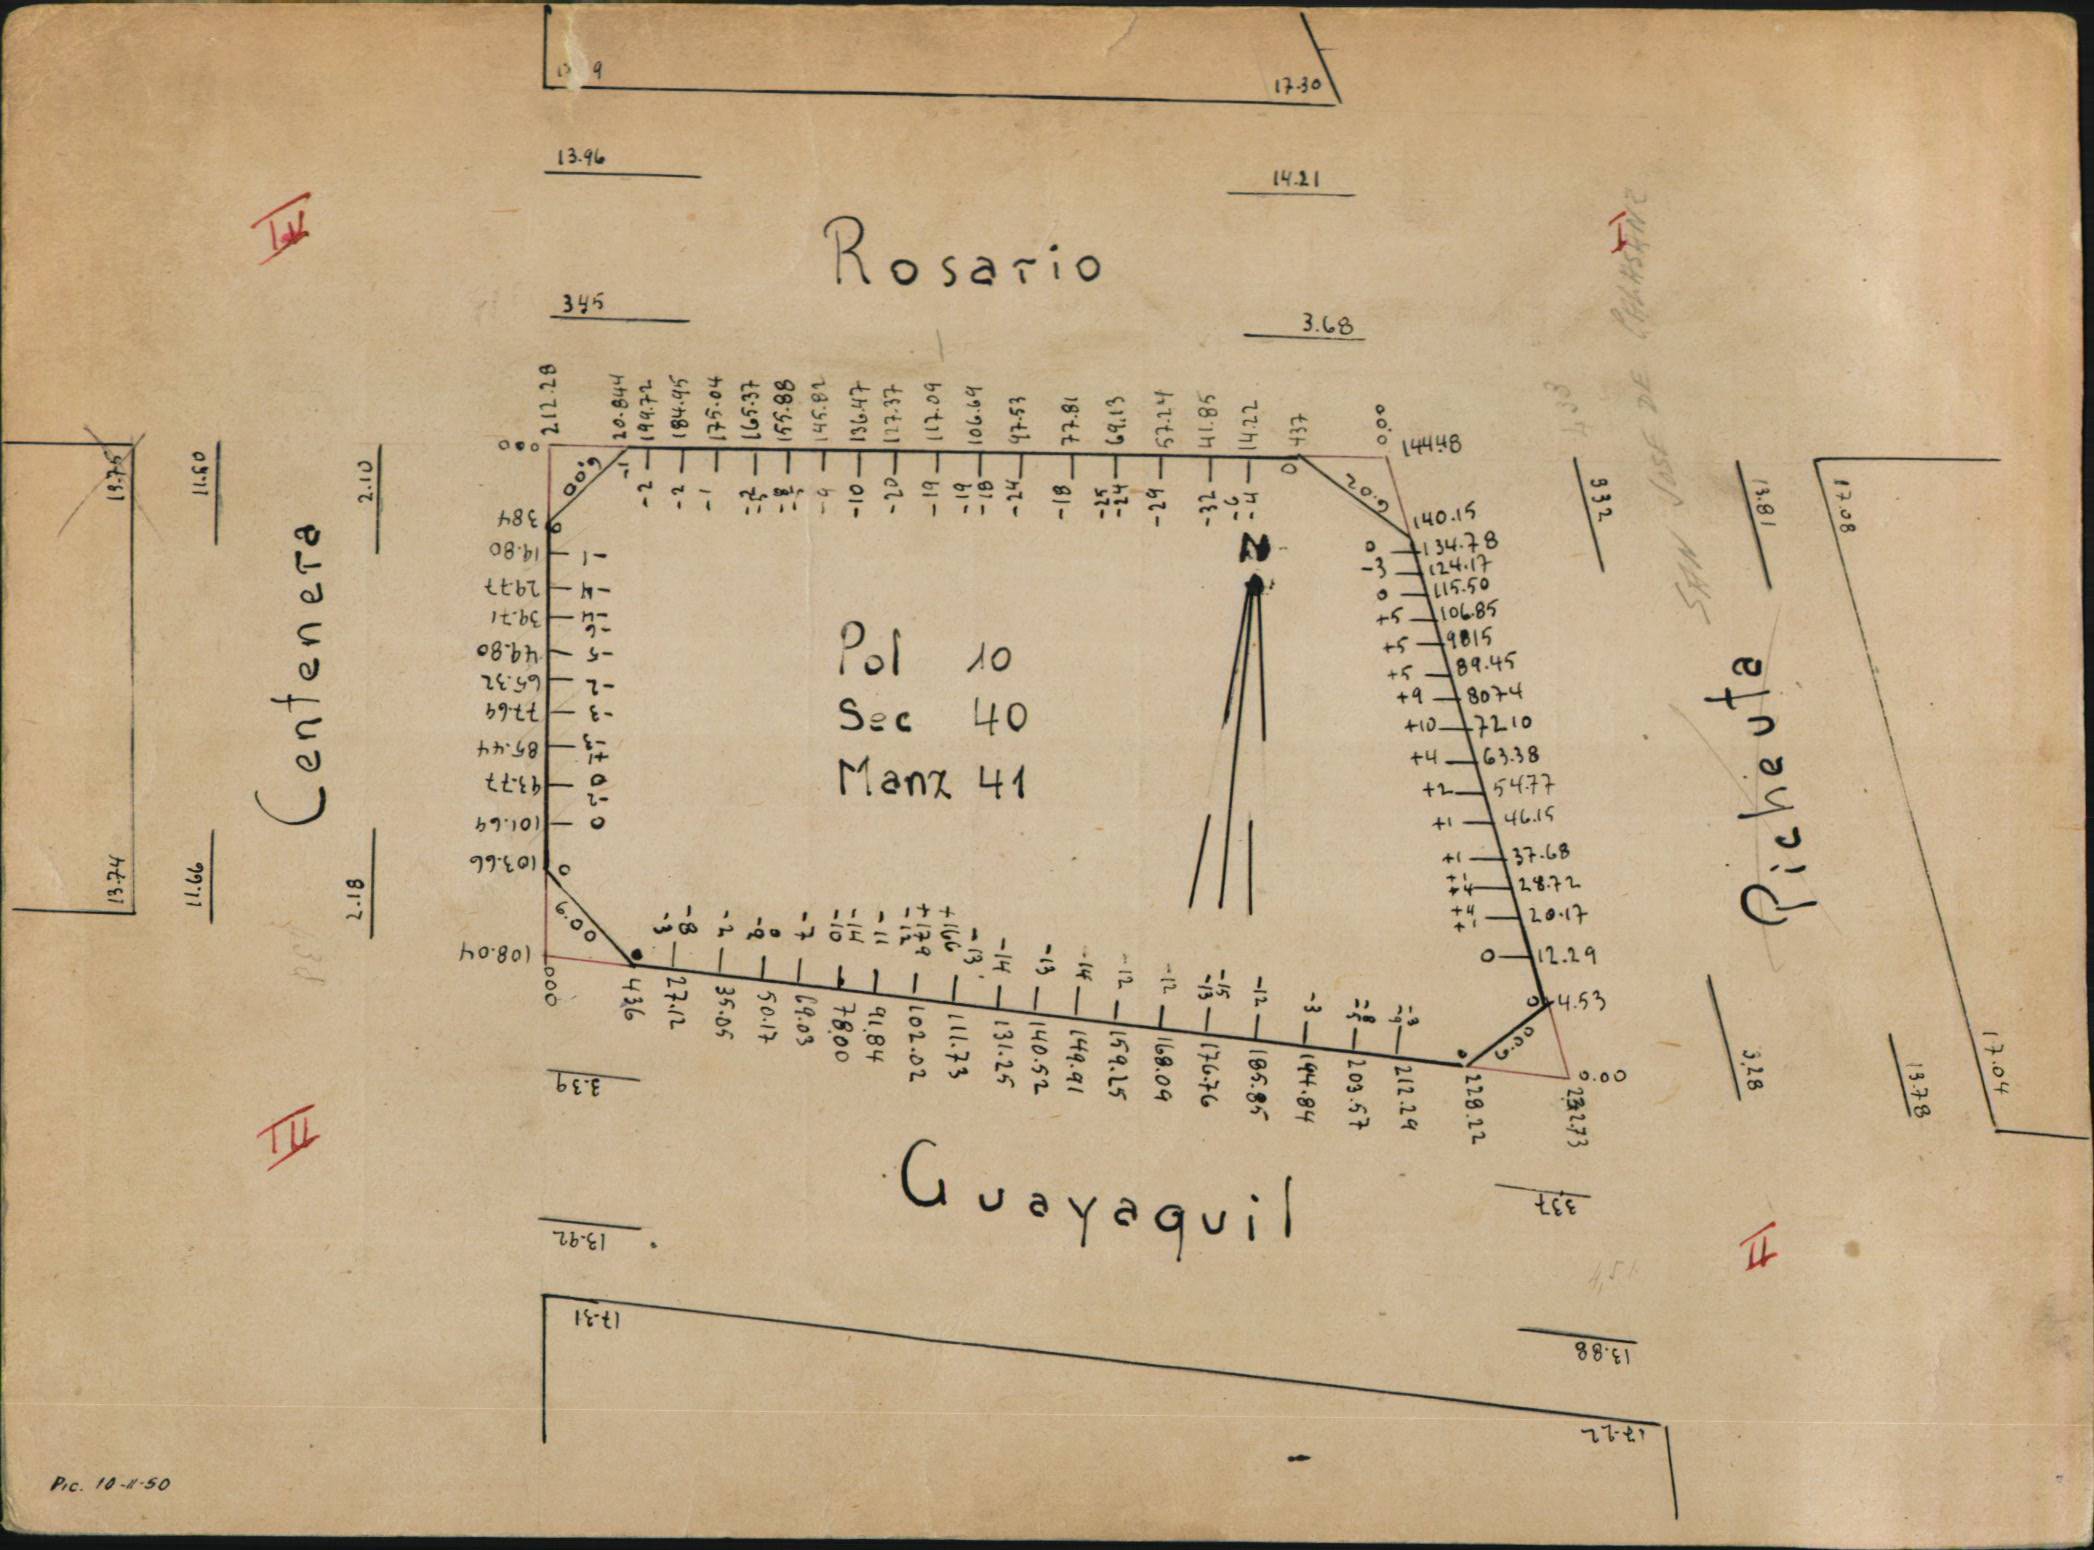 17.30
13.96
14.21
IV
I
Rosario
SAN JOSE DE CALASANZ
345
3.68
212.28
20.844
199.72
184.95
175.04
165.37
155.88
145.82
136.47
127.37
117.09
106.69
97.53
77.81
69.13
57.24
41.85
14.22
437
0.00
144.48
000
6.00
-1
-2
-2
-1
-9
-10
-20
-19
-19
-18
-24
-18
-25
-24
-29
-32
-6
-4
0
6.02
13.75
11.80
2.10
Centenera
13.74
11.66
2.18
384
19.80
29.77
39.71
49.80
65.32
77.69
85.44
93.77
101.69
103.66
108.04
000
0
-1
-4
-4
-6
-5
-2
-3
-3
+1
0
-2
0
0
6.00
N
Pol 10
Sec 40
Manz 41
140.15
0 134.78
-3 124.17
0 115.50
+5 106.85
+5 9815
+5 89.45
+9 8074
+10 7210
+4 63.38
+2 5477
+1 46.15
+1 37.68
28.72
+4 20.17
0 12.29
0 4.53
0.00
332
13.81
17.08
Pichauta
3.28
13.78
17.04
-3
-8
-2
-9
-7
-10
-14
-11
-12
+179
+166
-13
-14
-13
-14
-12
-12
-13
-15
-12
-3
-8
-5
-9
-3
436
27.12
35.05
50.17
69.03
78.00
91.84
102.02
111.73
131.25
140.52
149.91
159.25
168.09
176.76
185.85
194.84
203.57
212.29
228.22
232.73
3.39
III
Guayaquil
337
13.92
II
4,51
17.31
13.88
17.22
Pic. 10-11-50